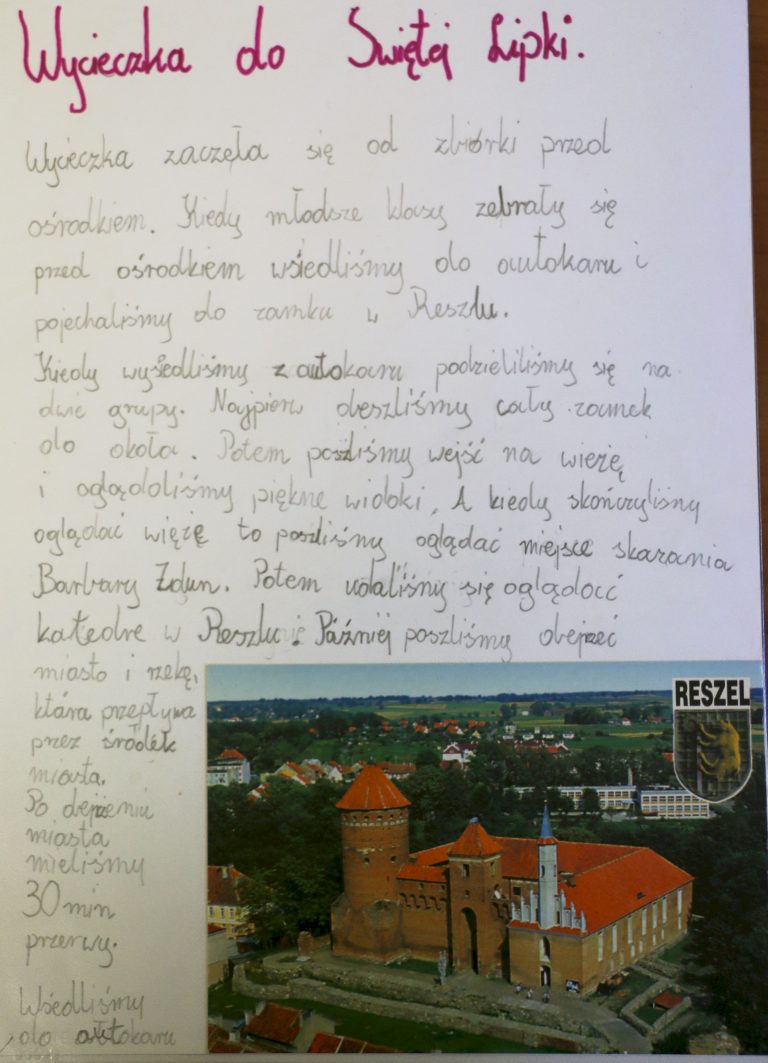 Wycieczka do Świętej Lipki.
Wycieczka zaczęła się od zbiórki przed
ośrodkiem. Kiedy młodsze klasy zebrały się
przed ośrodkiem wsiedliśmy do autokaru i
pojechaliśmy do zamku w Reszlu.
Kiedy wysiedliśmy z autokaru podzieliliśmy się na
dwie grupy. Najpierw obeszliśmy cały zamek
do okoła. Potem poszliśmy wejść na wieżę
i oglądoliśmy piękne widoki. A kiedy skończyliśmy
oglądać wieżę to poszliśmy oglądać miejsce skazania
Barbary Zdun. Potem udaliśmy się oglądać
katedre w Reszlu. Później poszliśmy obejrzeć
miasto i rzekę,
która przepływa
przez środek
miasta.
Po obejrzeniu
miasta
mieliśmy
30 min
przerwy.
Wśedliśmy
do autokaru
RESZEL